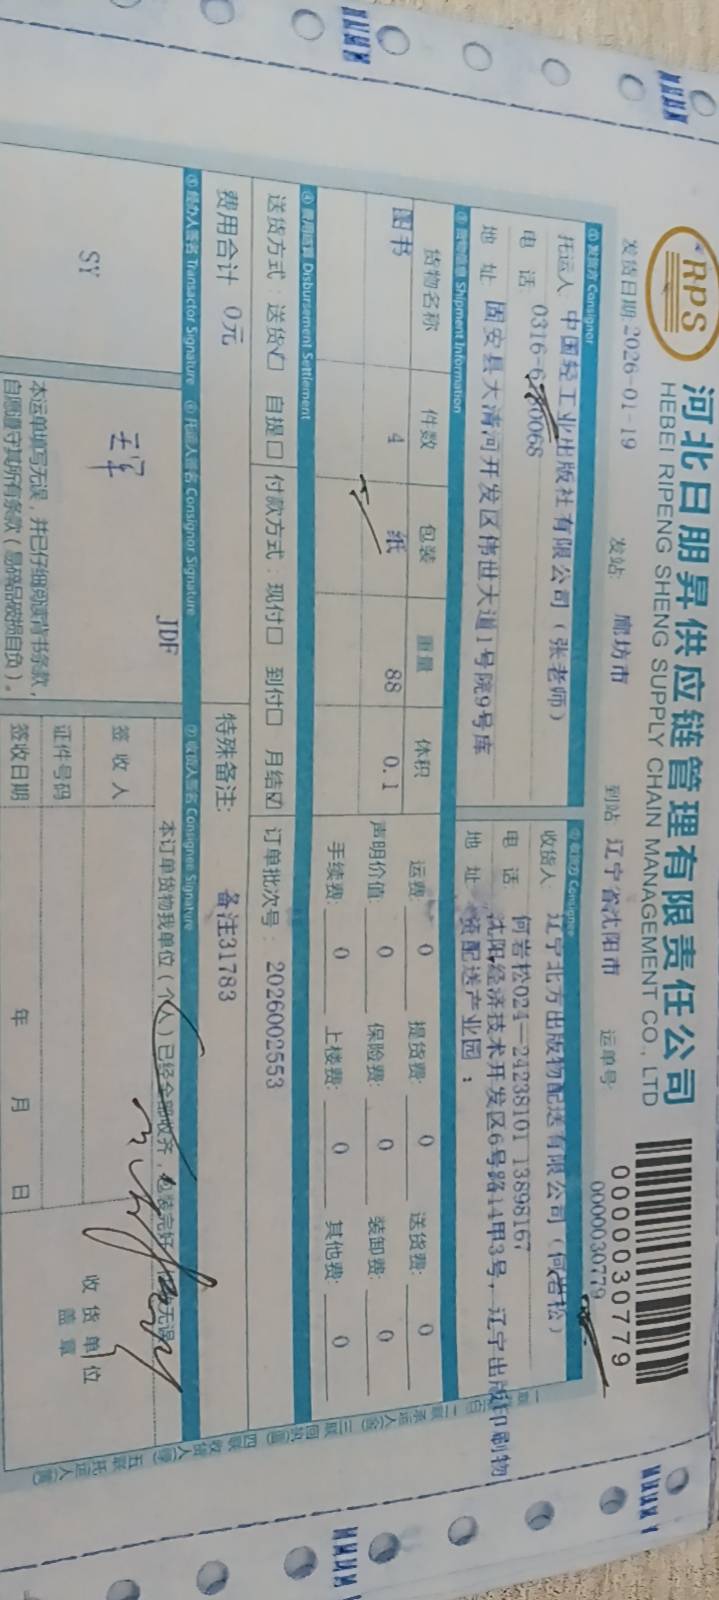 RPS
河北日朋昇供应链管理有限责任公司
HEBEI RIPENG SHENG SUPPLY CHAIN MANAGEMENT CO., LTD
0000030779
发货日期:2026-01-19 发站: 廊坊市 到站 辽宁省沈阳市 运单号: 0000030779
① 发货方 Consignor
② 收货方 Consignee
托运人 中国轻工业出版社有限公司（张老师）
收货人 辽宁北方出版物配送有限公司（何岩松）
电 话 0316-6 0068
电 话 何岩松024-24238101 13898167
地 址 固安县大清河开发区伟世大道1号院9号库
地 址 沈阳经济技术开发区6号路14甲3号，辽宁出版印刷物
资配送产业园：
③ 货物信息 Shipment Information
货物名称 件数 包装 重量 体积
图书 4 纸 88 0.1
运费: 0 提货费: 0 送货费: 0
声明价值: 0 保险费: 0 装卸费: 0
手续费: 0 上楼费: 0 其他费: 0
④ 费用结算 Disbursement Settlement
送货方式: 送货☑ 自提□ 付款方式: 现付□ 到付□ 月结☑ 订单批次号: 2026002553
费用合计 0元
特殊备注: 备注31783
⑤ 经办人签名 Transactor Signature
⑥ 托运人签名 Consignor Signature
⑦ 收货人签名 Consignee Signature
SY
JDF
本运单填写无误，并已仔细阅读背书条款，
自愿遵守其所有条款（易碎品破损自负）。
本订单货物我单位（个人）已经全部收齐，包装完好 无误
签 收 人
证件号码
签收日期 年 月 日
收 货 单 位
盖 章